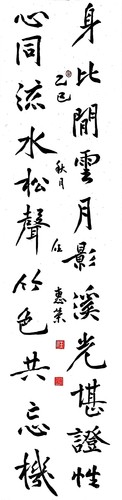 身比閒雲月影溪光堪證性
心同流水松聲竹色共忘機
乙巳秋月
任惠榮